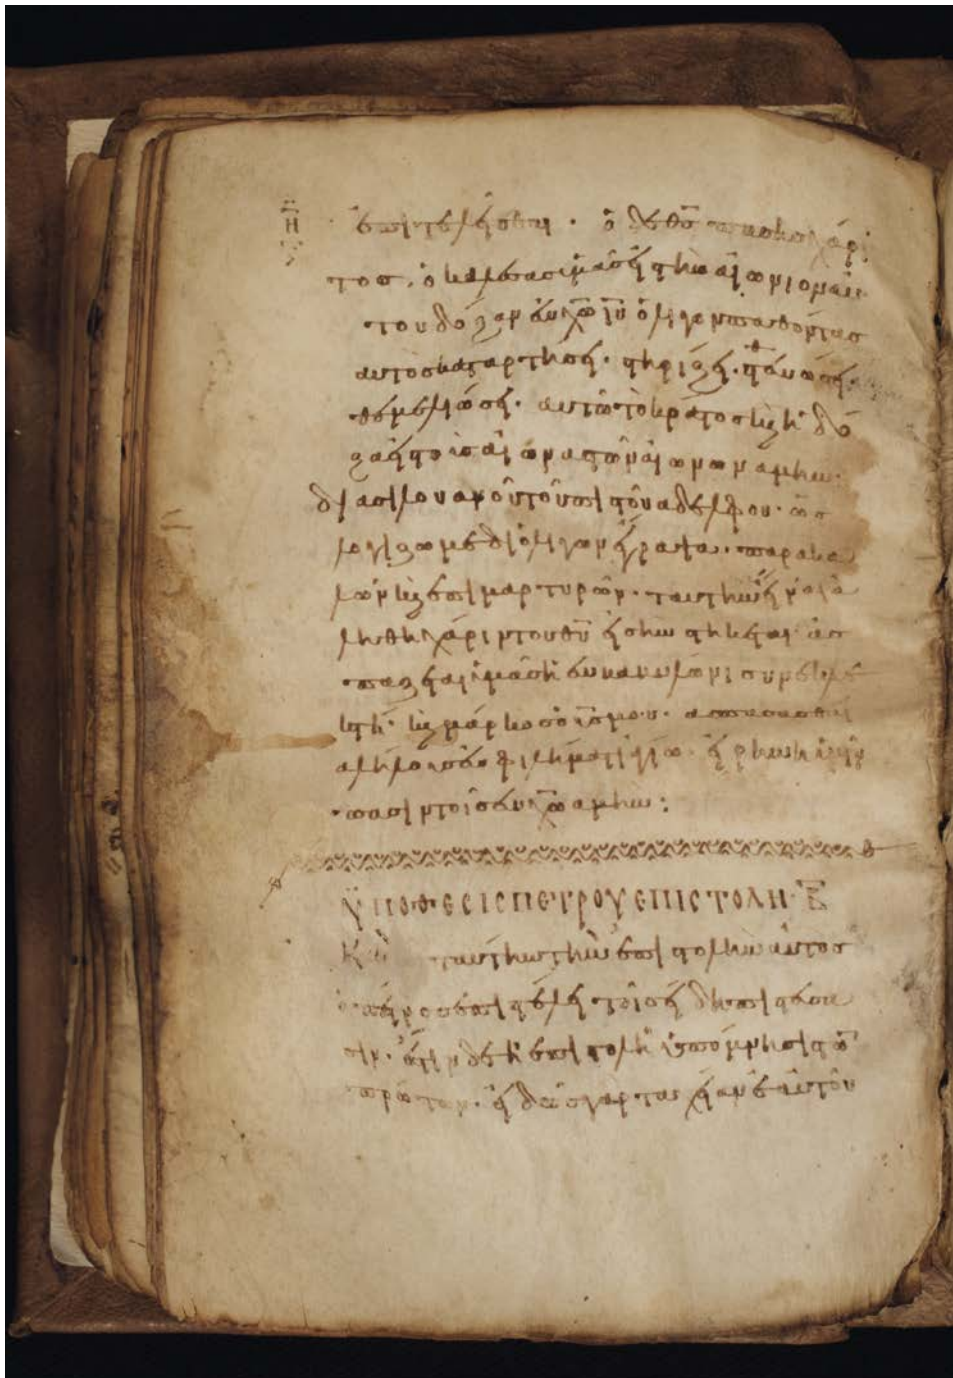 ἐπιτελεῖσθαι · ὁ δὲ θ̅ς̅ πάσης χάρι
τος, ὁ καλέσας ἡμᾶς εἰς τὴν αἰώνιον αὐ
τοῦ δόξαν ἐν χ̅ω̅ ι̅υ̅ ὀλίγον παθόντας
αὐτὸς καταρτήσει · στηρίξει · σθενώσει ·
θεμελιώσει · αὐτῶ τὸ κράτος καὶ ἡ δό
ξα εἰς τοὺς αἰῶνας τῶν αἰώνων ἀμήν ·
διὰ σιλουανοῦ τοῦ πιστοῦ ἀδελφοῦ · ὡς
λογίζωμε δι ὀλίγων ἔγραψα · παρακα
λῶν καὶ ἐπιμαρτυρῶν · ταύτην εἶναι ἀ
ληθῆ χάριν τοῦ θ̅υ̅ εἰς ἣν στήκεται · ἀσ
πάζεται ὑμᾶς ἡ ἐν βαβυλῶνι συνεκλε
κτή · καὶ μάρκος ὁ υ̅ς̅ μου · ἀσπάσασθαι
ἀλήλους ἐν φιλήματι ἁγίω · εἰρήνη ὑμῖν
πάσιν τοῖς ἐν χ̅ω̅ ἀμήν :
ὙΠΟΘΕСΙС ΠΕΤΡΟΥ ΕΠΙСΤΟΛΗ · Β̅
ταύτην τὴν ἐπιστολὴν αὐτὸς
ὁ πέτρος ἐπιστέλει τοῖς ἤδη πιστεύσα
σιν · ἔστιν δὲ ἡ ἐπιστολὴ ὑπόμνησις τῶν
πρώτων · εἰδὼς γὰρ ταχεῖαν ἑαυτοῦ